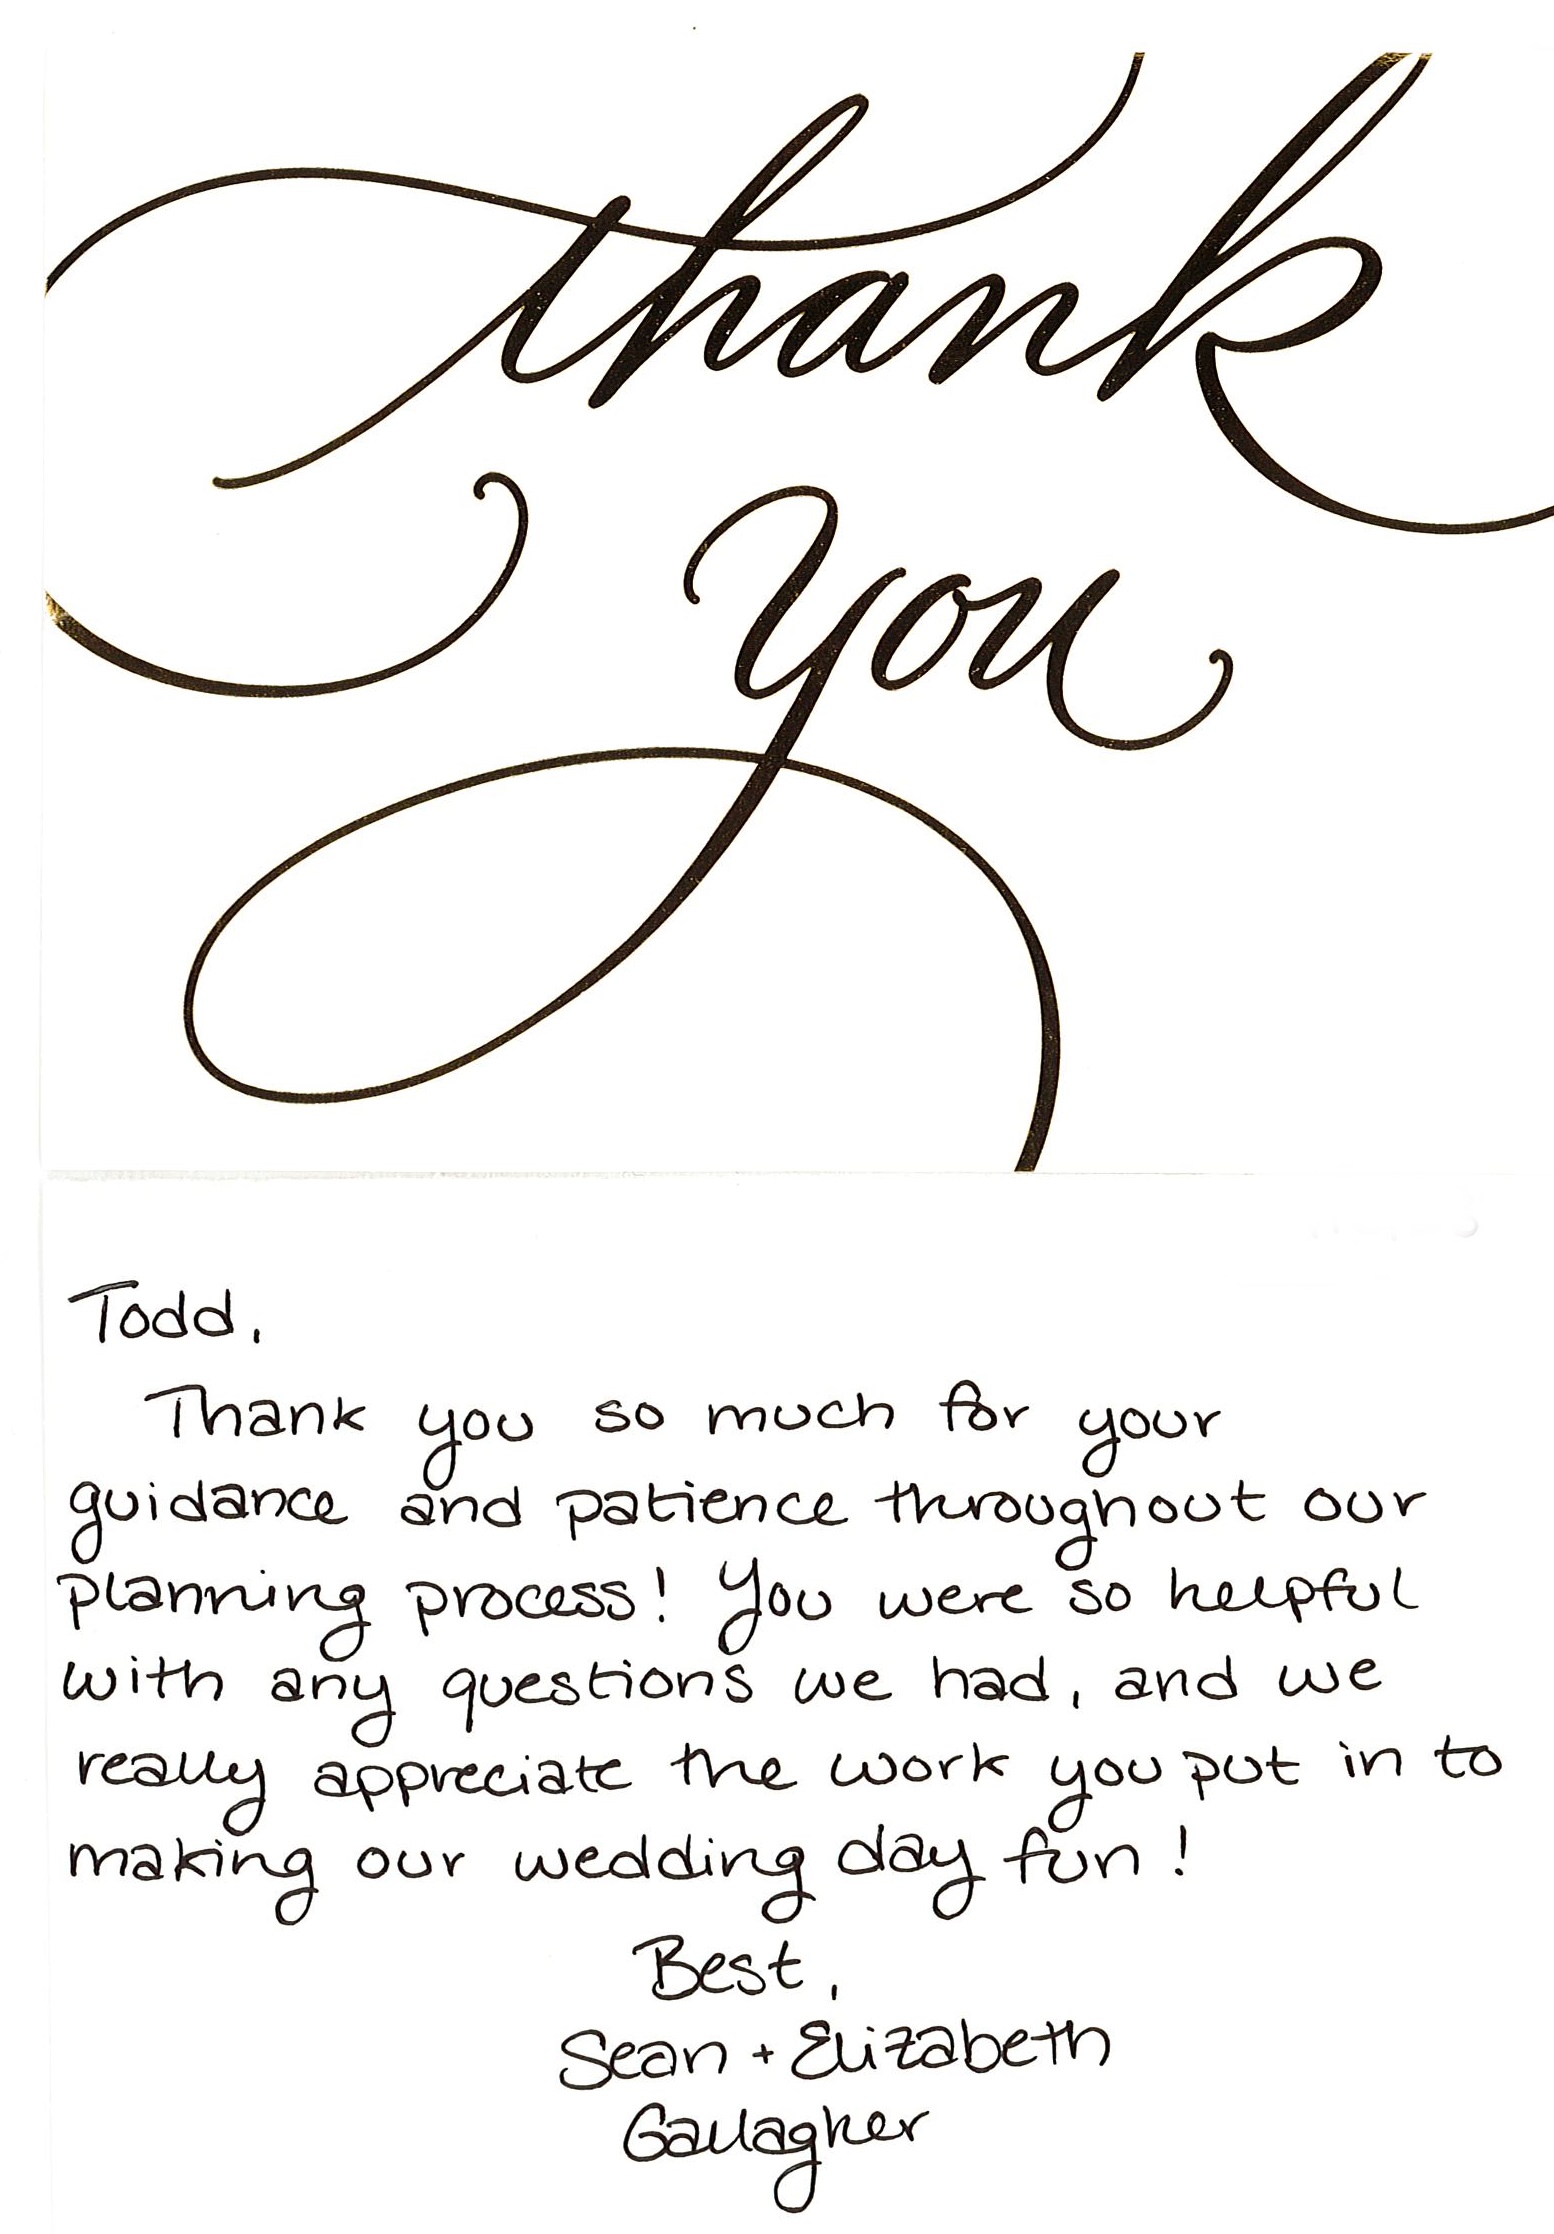 thank
you
Todd,
Thank you so much for your
guidance and patience throughout our
planning process! You were so helpful
with any questions we had, and we
really appreciate the work you put in to
making our wedding day fun!
Best,
Sean + Elizabeth
Gallagher